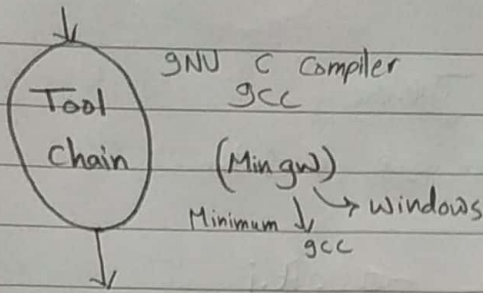 Tool
Chain
gNU C Compiler
gcc
(Mingw)
Minimum
gcc
windows